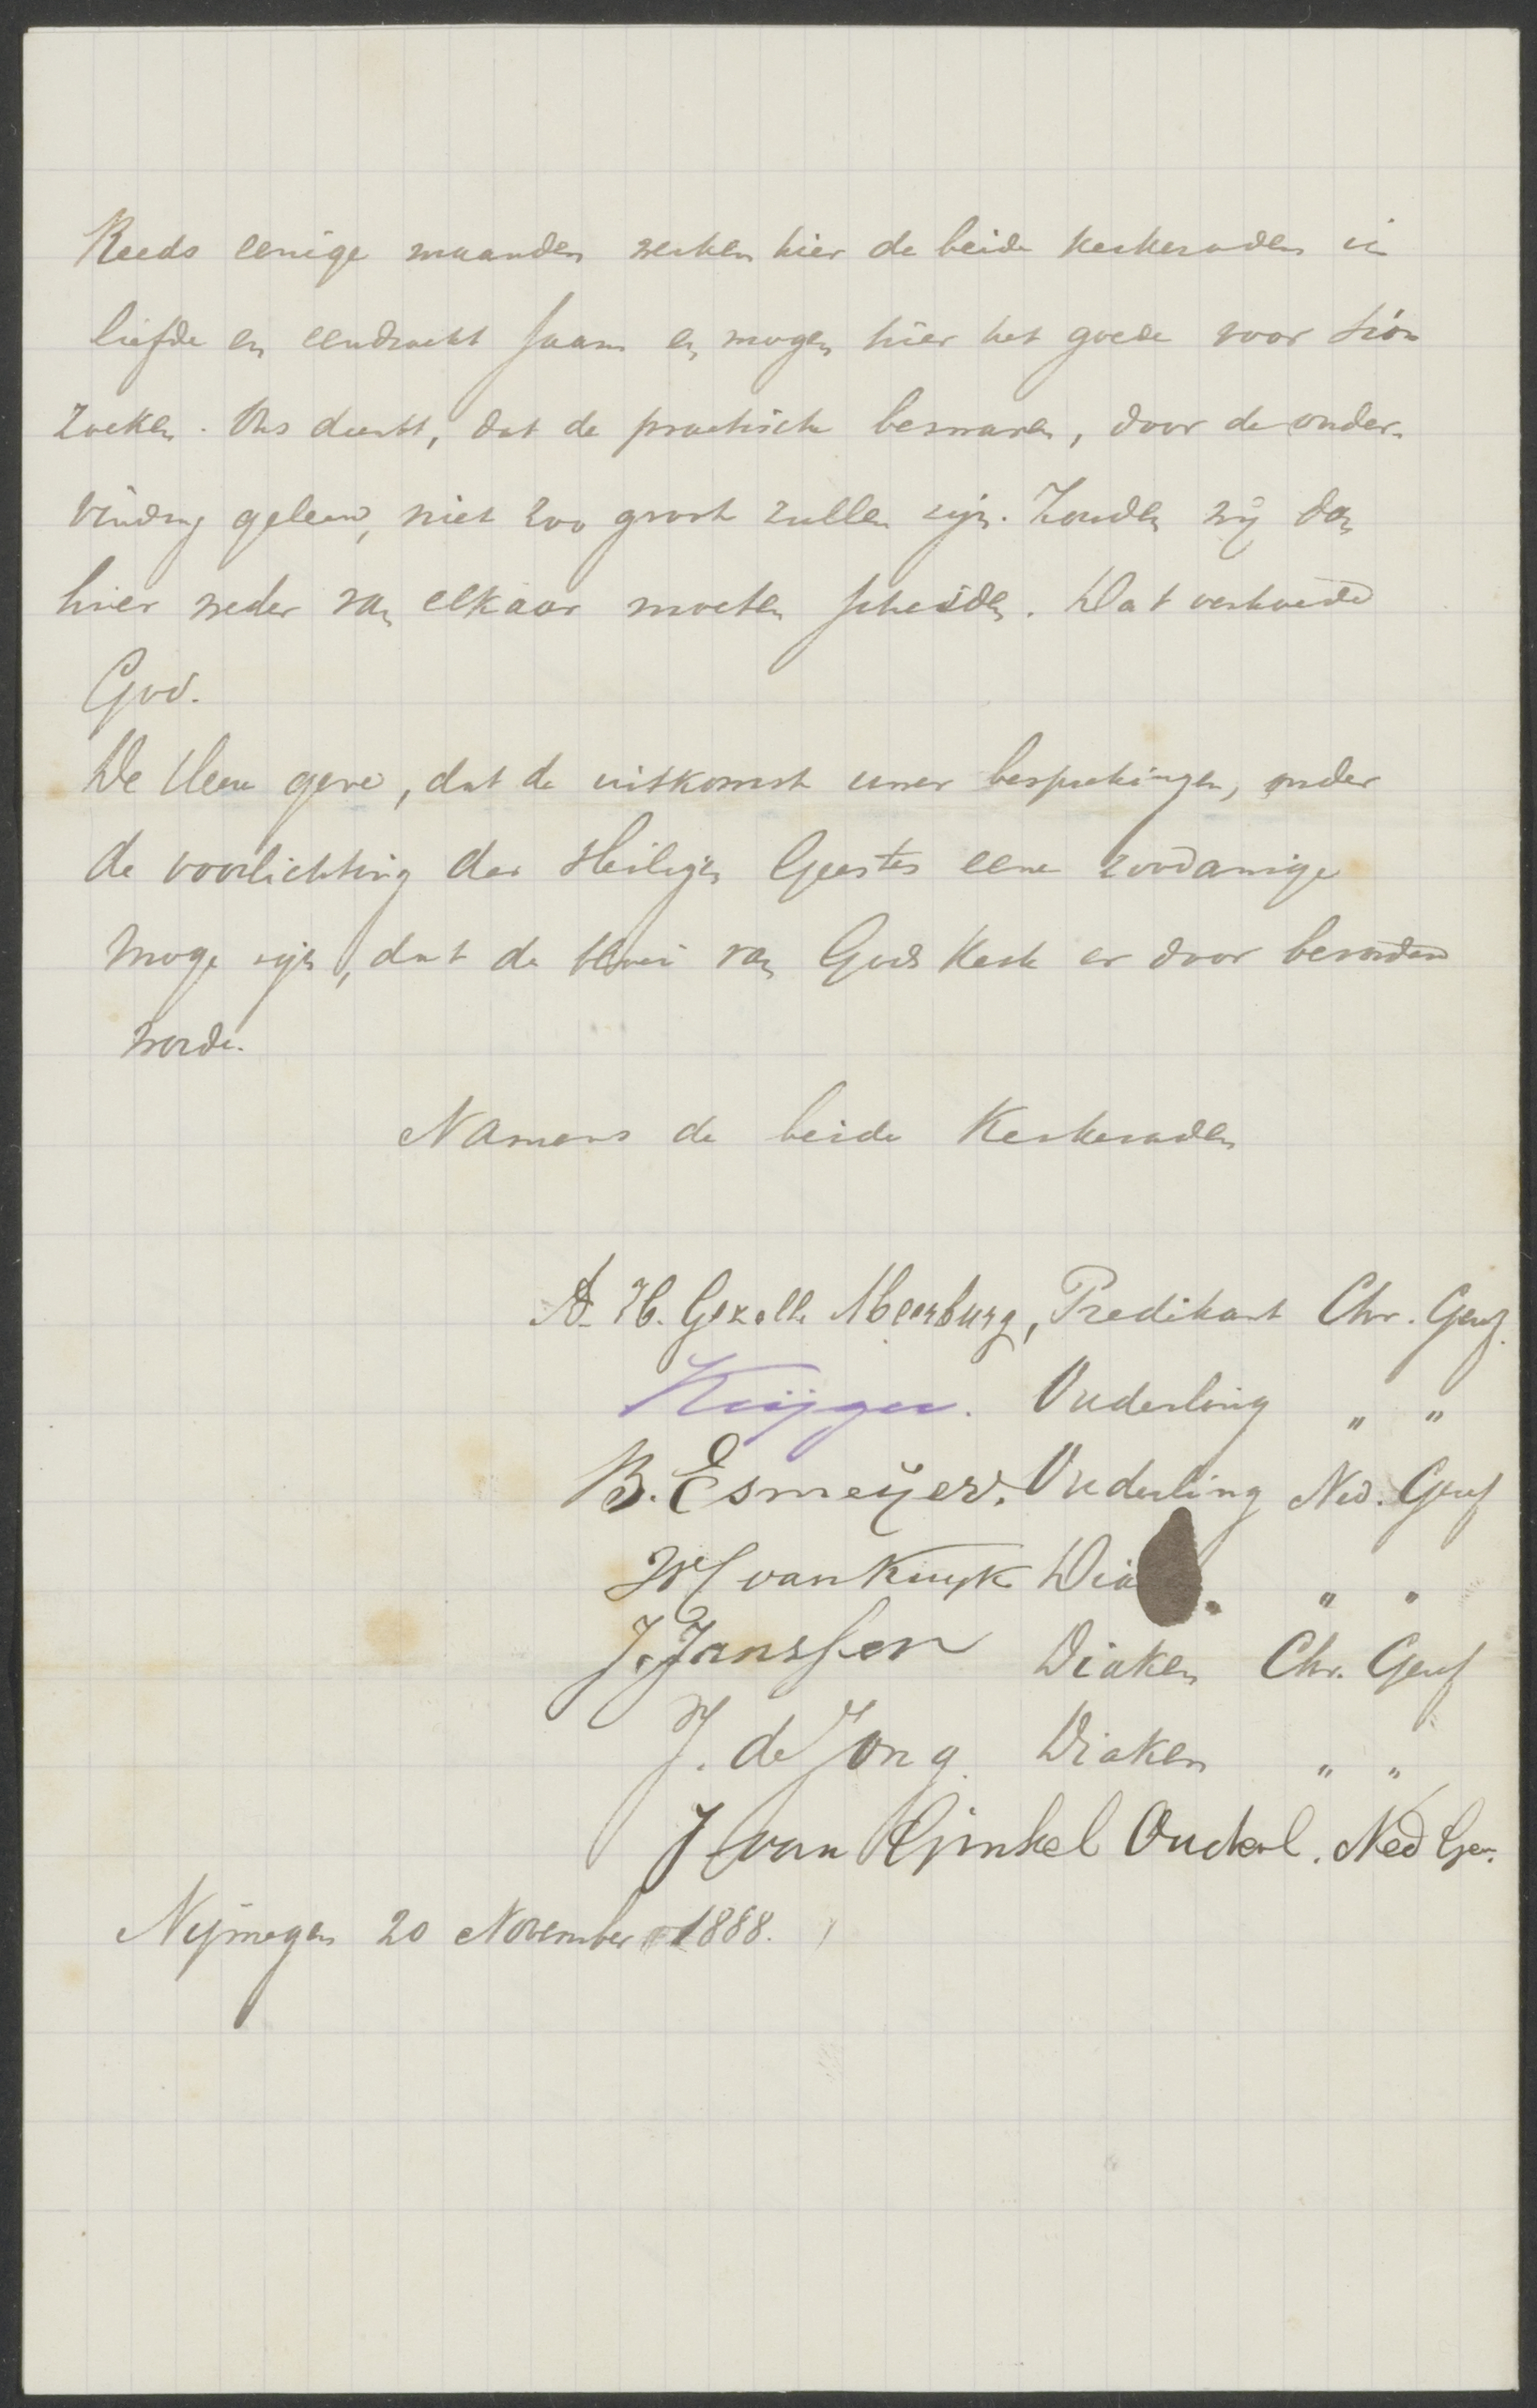 Reeds eenige maanden werken hier de beide kerkeraden in
liefde en eendracht saam en mogen hier het goede voor Sion
zoeken. Ons dunkt, dat de practische bezwaren, door de onder-
vinding geleerd, niet zoo groot zullen zijn. Zouden wij dan
hier weder van elkaar moeten scheiden. Dat verhoede
God.
De Heere geve, dat de uitkomst uwer besprekingen, onder
de voorlichting des Heiligen Geestes eene zoodanige
moge zijn, dat de bloei van Gods Kerk er door bevorderd
worde.
Namens de beide Kerkeraden
A. H. Gezelle Meerburg, Predikant Chr. Geref.
Ouderling " "
B. Esmeyer. Ouderling Ned. Geref
van Kuyk Dia . " "
J. Janssen Diaken Chr. Geref
J. de Jong. Diaken " "
J van Ginkel Ouderl. Ned Ger.
Nijmegen 20 November 1888.